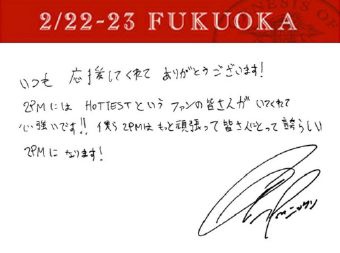 2/22-23 FUKUOKA
いつも 応援してくれて ありがとうございます!
2PMには HOTTESTという ファンの皆さんが いてくれて
心強いです!! 僕ら2PMは もっと頑張って 皆さんにとって 誇らしい
2PMに なります!